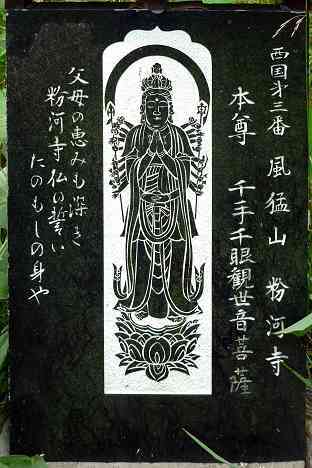 西国第三番 風猛山 粉河寺
本尊 千手千眼観世音菩薩
父母の恵みも深き
粉河寺仏の誓い
たのもしの身や